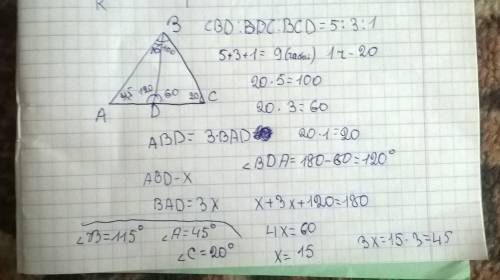 B
15 100
45 120 60 20
A D C
CBD:BDC:BCD=5:3:1
5+3+1=9 1ч-20
20·5=100
20·3=60
ABD=3·BAD 20·1=20
∠BDA=180-60=120°
ABD-x
BAD=3x x+3x+120=180
∠B=115° ∠A=45° 4x=60
∠C=20° x=15 3x=15·3=45